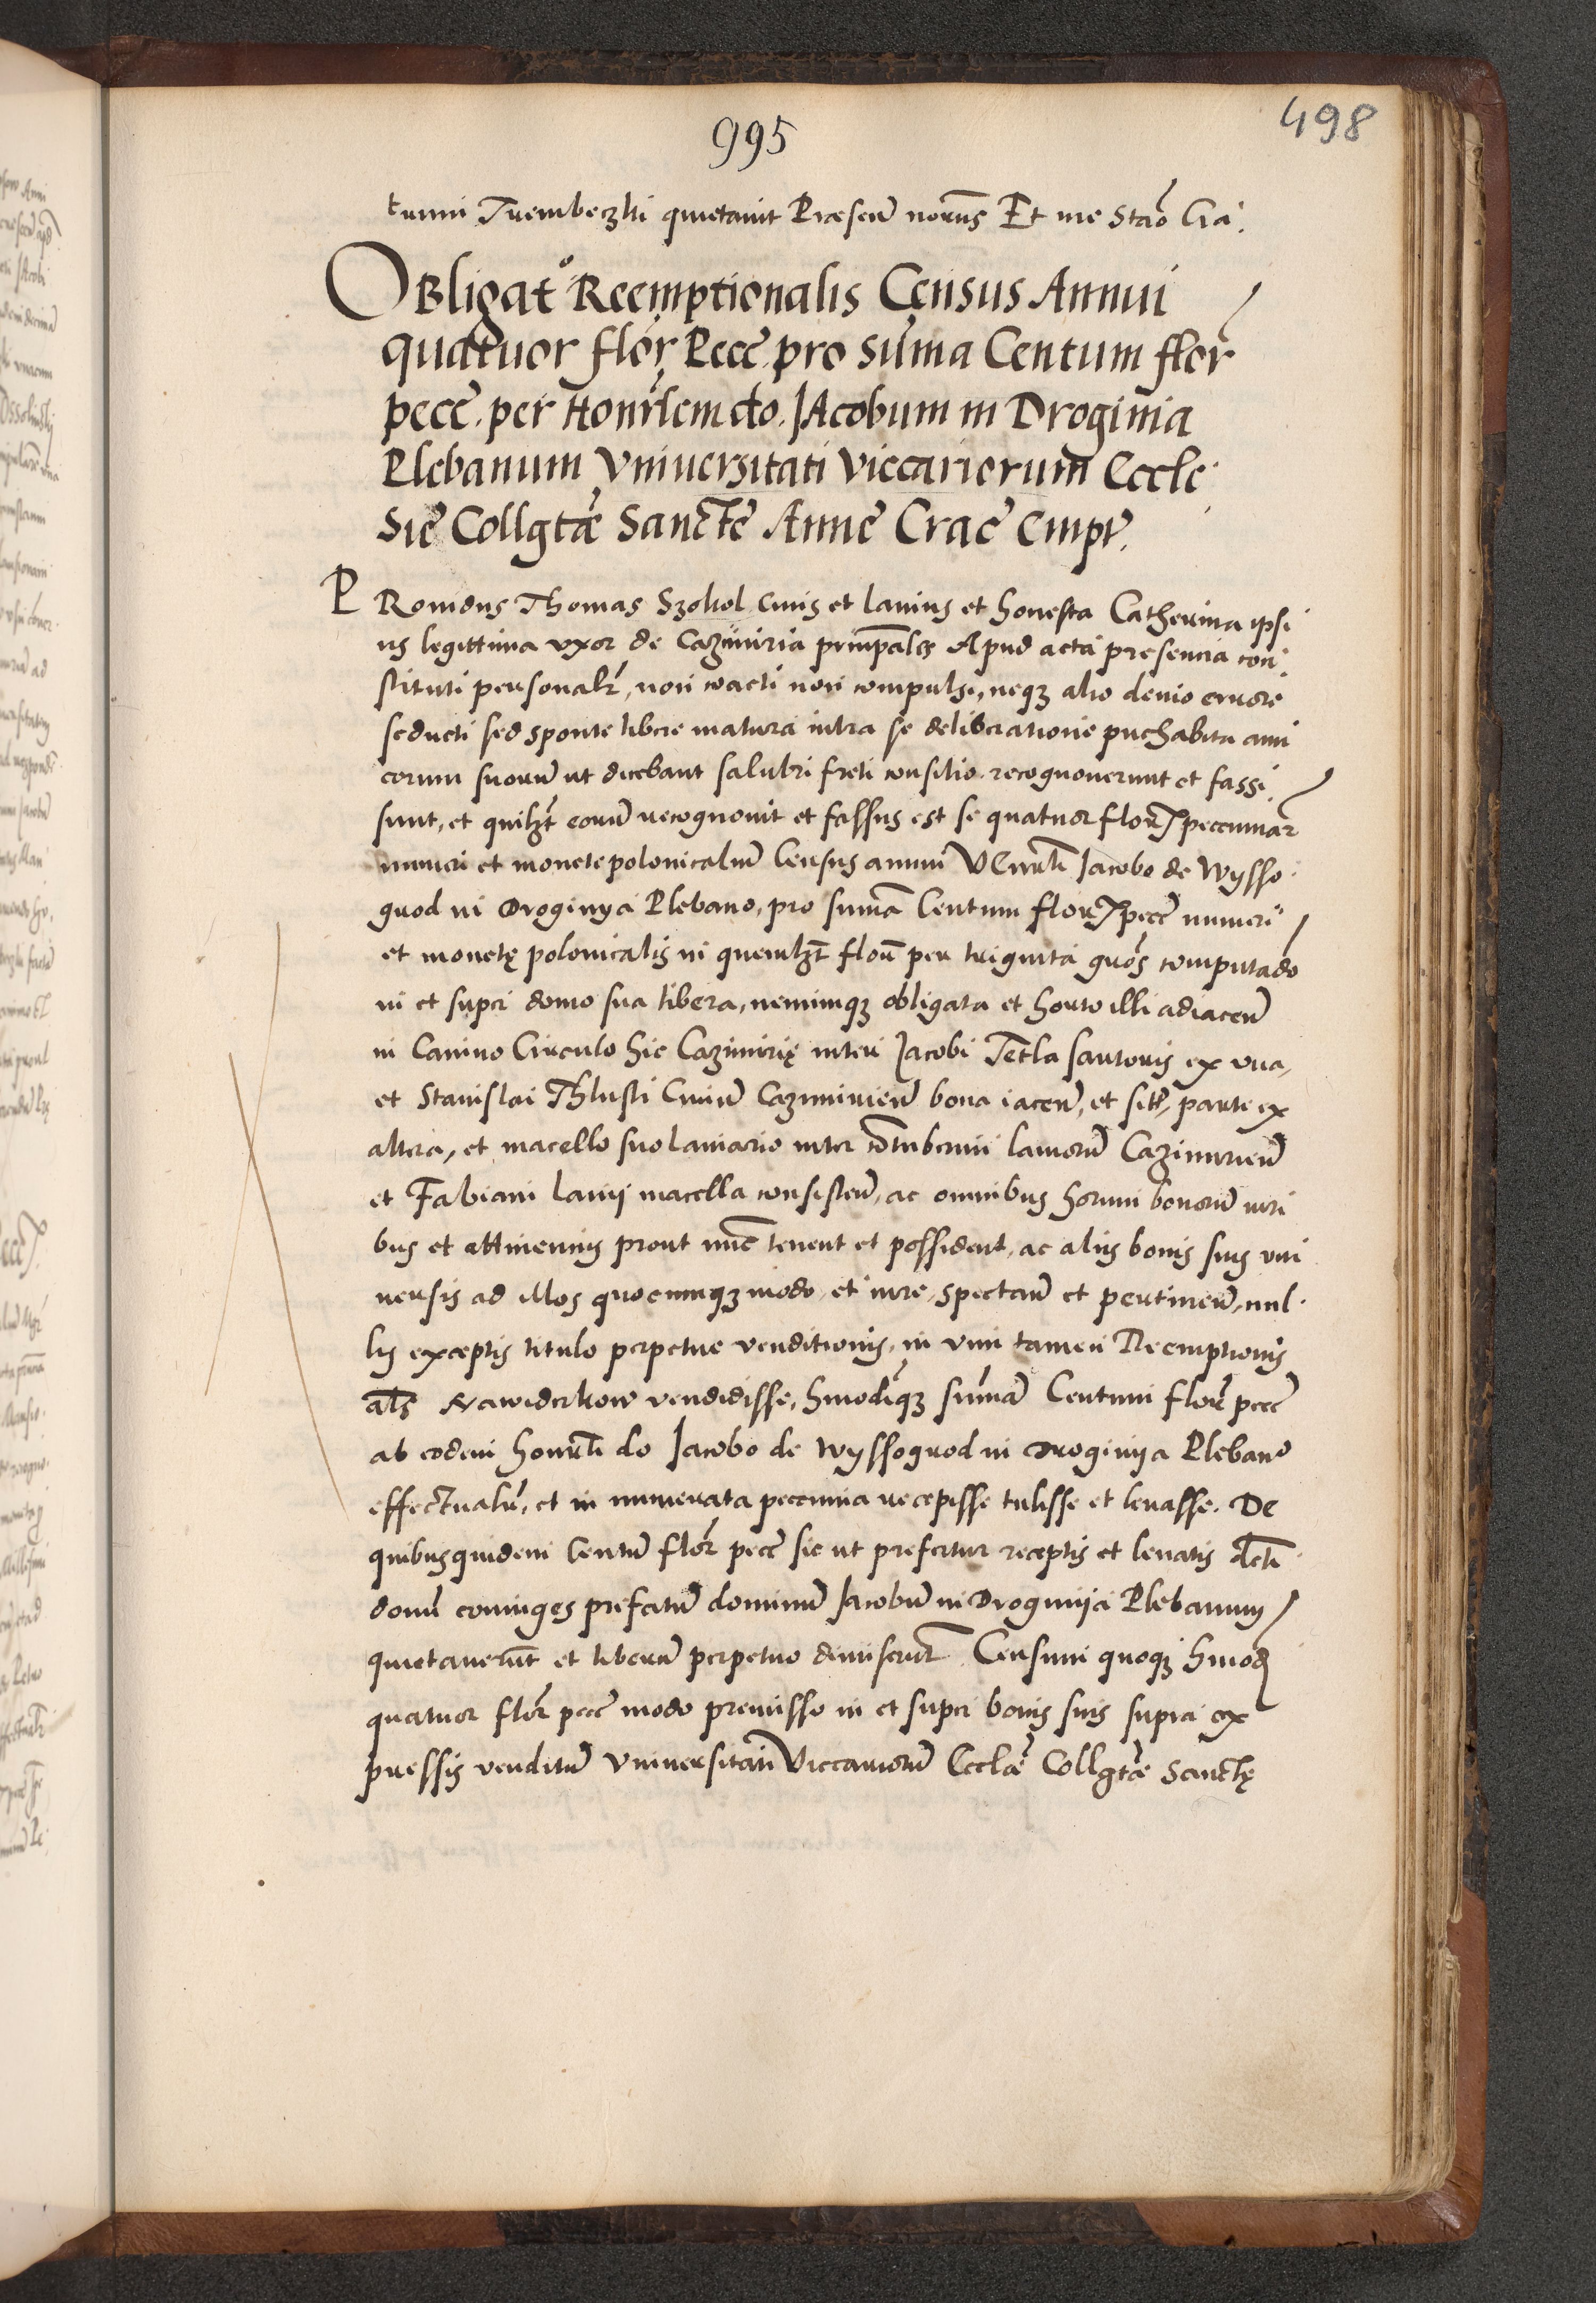 995
498
tunni Trembeczki quietavit Præsen͂ nōrius Et me Stāo Cra.
OBligat° Reemptionalis Census Annui
quatuor flōr Pecc̄ pro Sūma Centum flor̄
pecc̄. per Honr̄lem do. JAcobum in Droginia
Plebanum Vniversitati Viccariorum Eccle
Sie Collgtæ Sancte Anne Crac̄ Empt.
PRovidus Thomas Szokol Civis et lanius et honesta Catherina ipsi
us legittima vxor de Cazimiria prin̄pales Apud acta presencia con
stituti personalr̄, non coacti non compulsi, neqz alio devio errore
seducti sed sponte libere matura intra se deliberatione prehabita ami
corum suorū ut dicebant salubri freti consilio recognoverunt et fassi
sunt, et quilzt eorū recognovit et fassus est se quatuor flor pecuniar̄
numeri et monete polonicaliū Census annui VEnr̄li Jacobo de Wysso
grod in Droginya Plebano, pro sum̄a Centum flor pecc̄ numeri
et monetę polonicalis in quemlzt flor̄ per triginta grōs computādo
in et super domo sua libera, neminiqz obligata et horto illi adiacen̄
in Canino Circulo hic Cazimirię inter Jacobi Tetla sartoris ex vna,
et Stanislai Thlusti Civiū Cazimirien̄ bona iacen̄, et sit, parte ex
altera, et macello suo laniario inter contubernii laniorū Cazimirien̄
et Fabiani lanij macella consisten̄, ac omnibus horum bonorū iuri
bus et attinenciis prout nunc tenent et possident, ac aliis bonis suis vni
versis ad illos quocumqz modo et iure, spectan̄ et pertinen̄, nul
lis exceptis titulo perpetue venditionis, in vim tamen Reemptionis
als Nawiderkow vendidisse, hmodiqz summā Centum flor̄ pecc̄
ab eodem honr̄li do Jacobo de Wyssogrod in Droginija Plebano
effectualr̄, et in numerata pecunia recepisse tulisse et levasse. De
quibusquidem Centū flor̄ pecc̄ sic ut prefertur receptis et levatis dcti
domī coniuges prefatū dominū Jacobū in Droginija Plebanum
quietaverūt et liberū perpetuo dimiserūt Censum quoqz hmodi
quatuor flor̄ pecc̄ modo premisso in et super bonis suis supra ex
pressis venditū Vniversitati Viccariorū Ecclæ Collgtæ Sanctę